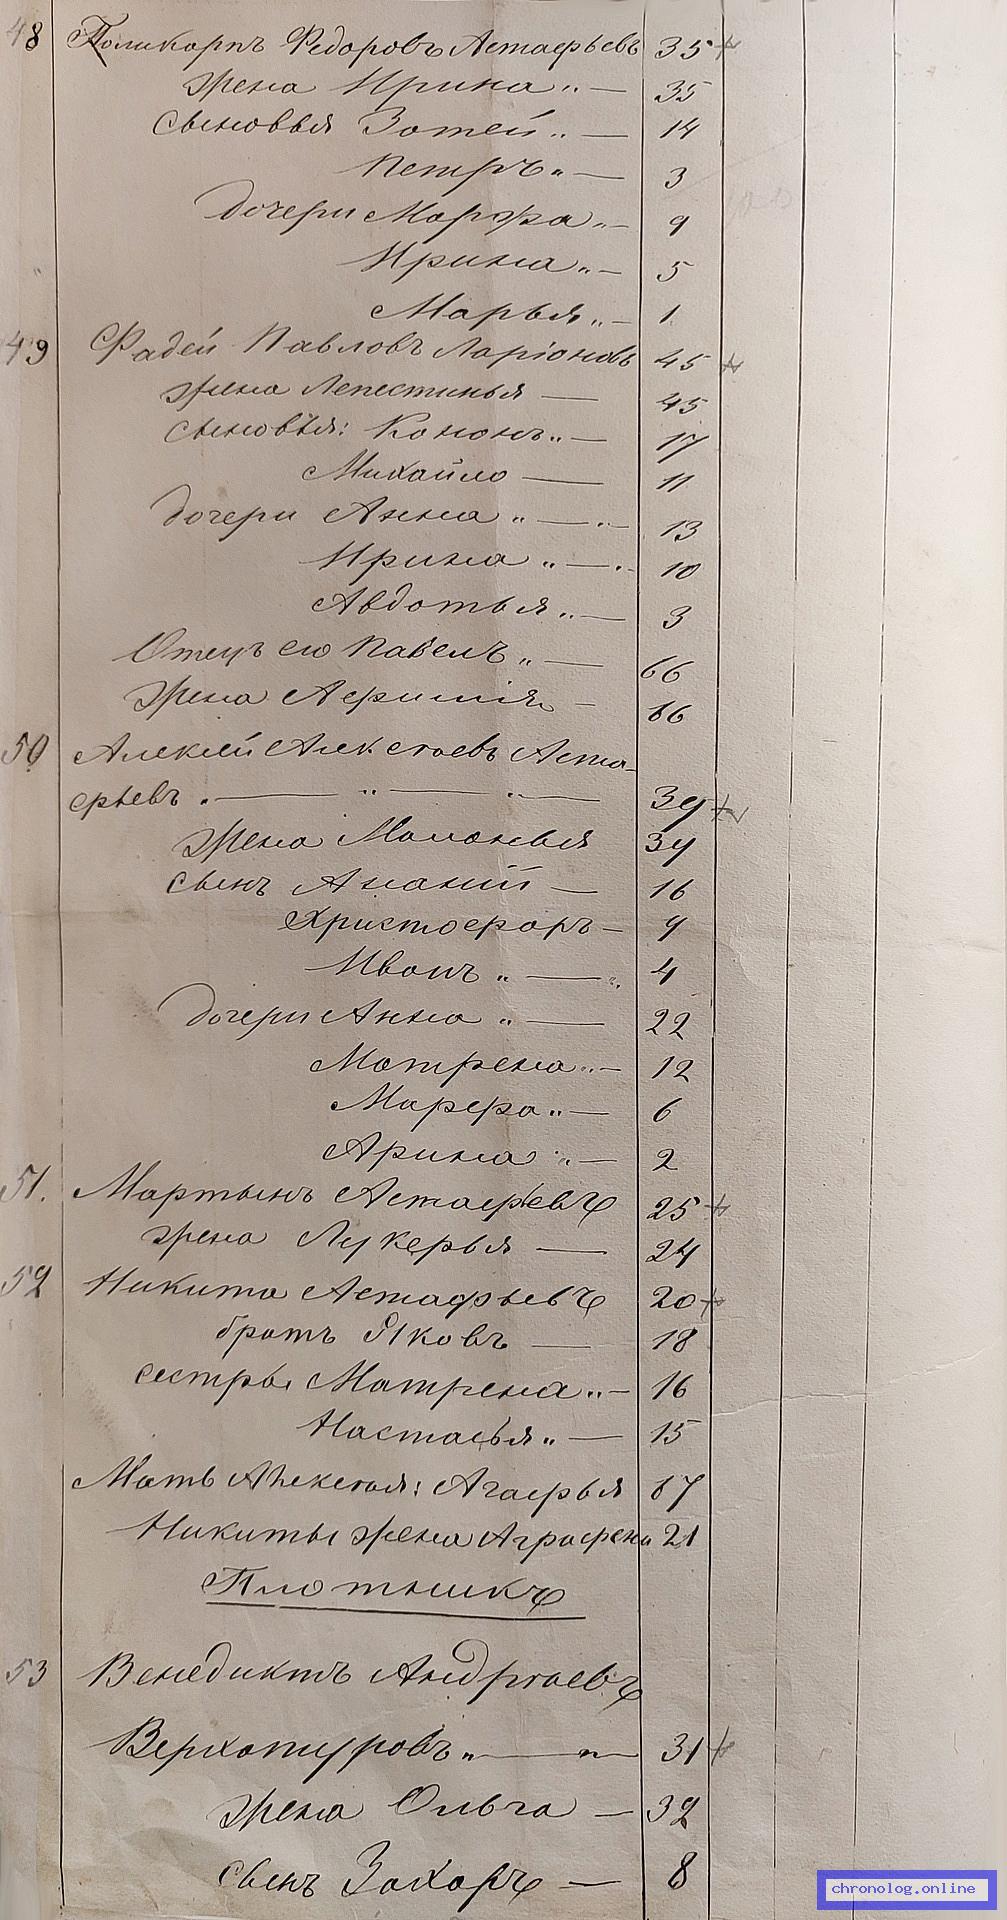 48 Поликарпъ Ѳедоровъ Астафьевъ 35
жена Ирина „ — 35
сыновья Зотей „ — 14
Петръ „ — 3
дочери Марфа „ — 9
Ирина „ — 5
Марья „ — 1
49 Фадей Павловъ Ларіоновъ 45
жена Лепестинья — 45
сыновья: Кононъ „ — 17
Михайло — 11
дочери Анна „ — „ — 13
Ирина „ — „ 10
Авдотья „ — 3
Отецъ его Павелъ „ — 66
жена — 66
50 Алексѣй Алексѣевъ Аста-
фьевъ „ — „ — „ — 39
жена Маланья 39
сынъ Ананій — 16
Христофоръ — 9
Иванъ „ — „ 4
дочери Анна „ — 22
Матрена „ — 12
Марфа „ — 6
Арина „ — 2
51. Мартынъ Астафьевъ 25
жена Лукерья — 24
52 Никита Астафьевъ 20
братъ Яковъ — 18
сестры Матрена „ — 16
Настасья „ — 15
Мать Алексѣя: Агафья 67
Никиты жена Аграфена 21
Плотникъ
53 Венедиктъ Андрѣевъ
Верхотуровъ „ — „ — 31
жена Ольга — 32
сынъ Захаръ — 8
chronolog.online